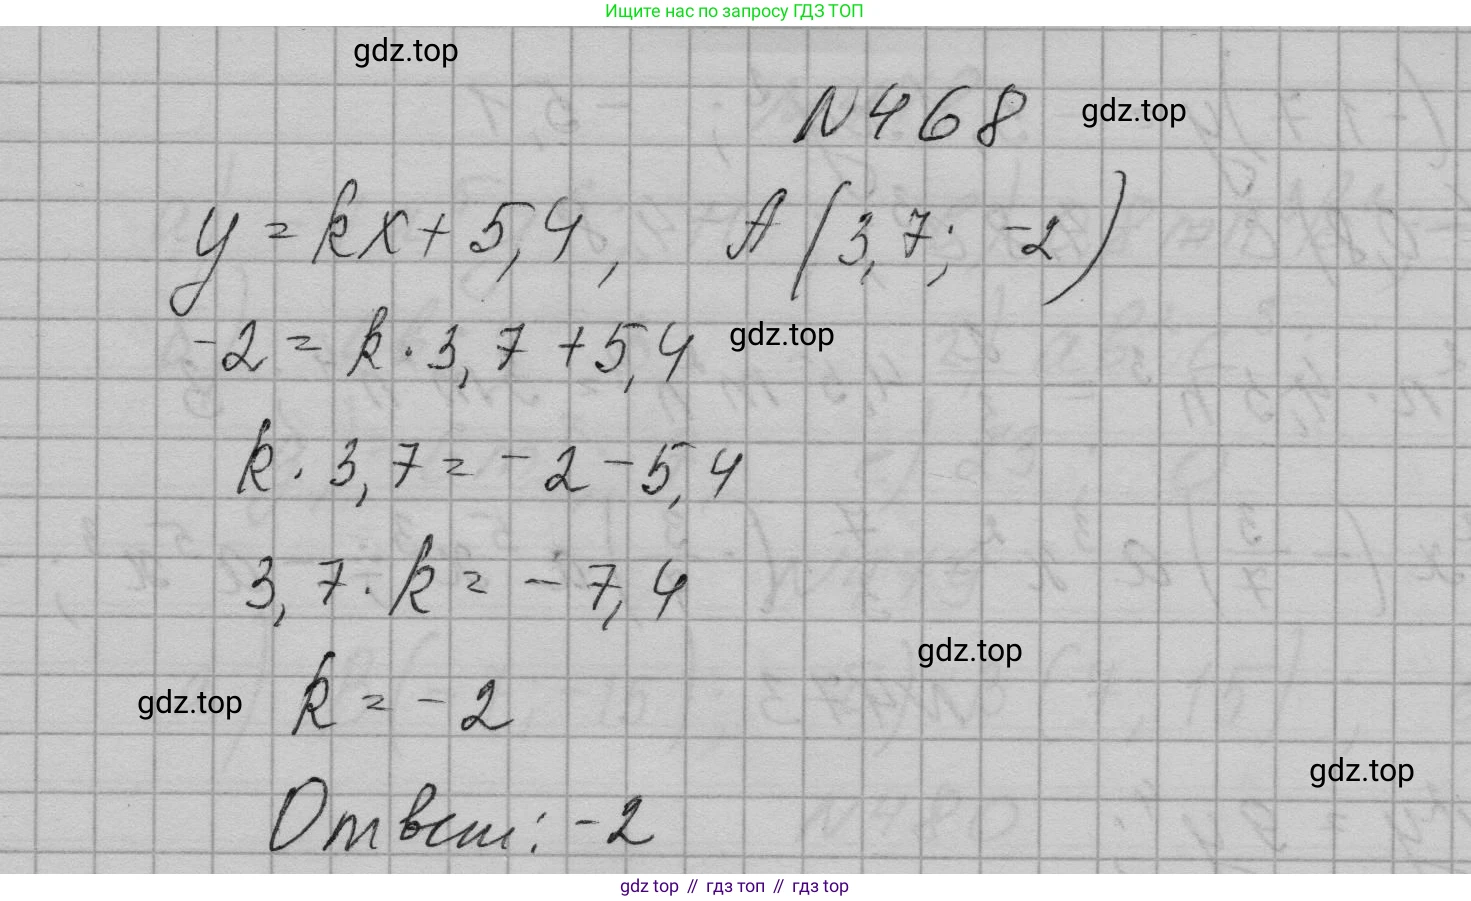 Ищите нас по запросу ГДЗ ТОП
gdz.top
N468 gdz.top
y = kx + 5,4, A (3,7; -2)
-2 = k · 3,7 + 5,4 gdz.top
k · 3,7 = -2 - 5,4
3,7 · k = -7,4
gdz.top
gdz.top k = -2
gdz.top
Ответ: -2
gdz top // гдз топ // гдз top